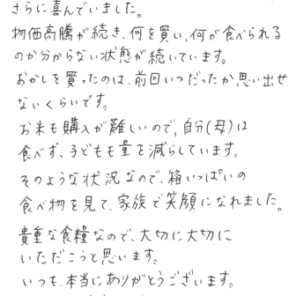 さらに喜んでいました。
物価高騰が続き、何を買い、何が食べられる
のか分からない状態が続いています。
おかしを買ったのは、前回いつだったか思い出せ
ないくらいです。
お米も購入が難しいので、自分(母)は
食べず、子どもも量を減らしています。
そのような状況なので、箱いっぱいの
食べ物を見て、家族で笑顔になれました。
貴重な食糧なので、大切に大切に
いただこうと思います。
いつも、本当にありがとうございます。